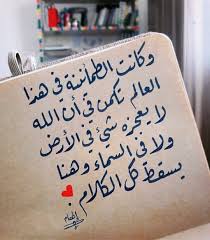 وكانت الطمأنينة في هذا
العالم تكمن في أن الله
لا يعجزه شيئ في الأرض
ولا في السماء وهنا
يسقط كل الكلام.